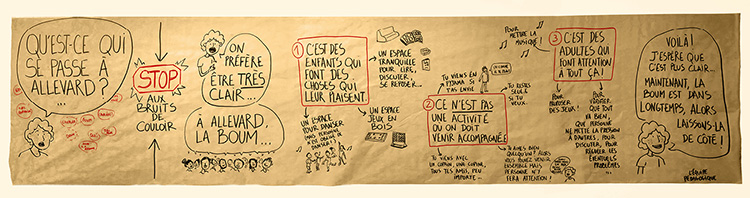 QU'EST-CE QUI
SE PASSE À
ALLEVARD ?
...
STOP
AUX
BRUITS
DE
COULOIR
ON
PRÉFÈRE
ÊTRE TRÈS
CLAIR...
À ALLEVARD,
LA BOUM...
1 C'EST DES
ENFANTS QUI
FONT DES
CHOSES QUI
LEUR PLAISENT.
UN ESPACE
TRANQUILLE
POUR LIRE,
DISCUTER,
SE REPOSER...
UN ESPACE
JEUX EN
BOIS
UN ESPACE
POUR DANSER
DANSER !
TU VIENS EN
PYJAMA SI
T'AS ENVIE
2 CE N'EST PAS
UNE ACTIVITÉ
OU ON DOIT
VENIR ACCOMPAGNÉ
TU RESTES
SEUL SI
TU VEUX.
TU VIENS AVEC
UN COPAIN, UNE COPINE,
TOUS TES AMIS, PEU
IMPORTE...
TU AIMES BIEN
QUELQU'UN ? ALORS
VOUS POUVEZ VENIR
ENSEMBLE MAIS
PERSONNE N'Y
FERA ATTENTION !
POUR
METTRE LA
MUSIQUE !
3 C'EST DES
ADULTES QUI
FONT ATTENTION
À TOUT ÇA !
POUR
PROPOSER
DES JEUX !
POUR
VÉRIFIER
QUE TOUT
VA BIEN,
QUE PERSONNE
NE METTE LA PRESSION
À D'AUTRES, POUR
DISCUTER, POUR
RÉGLER LES
ÉVENTUELS
PROBLÈMES
...
VOILÀ !
J'ESPÈRE QUE
C'EST PLUS CLAIR...
MAINTENANT, LA
BOUM EST DANS
LONGTEMPS, ALORS
LAISSONS-LA
DE CÔTÉ !
L'ÉQUIPE
PÉDAGOGIQUE